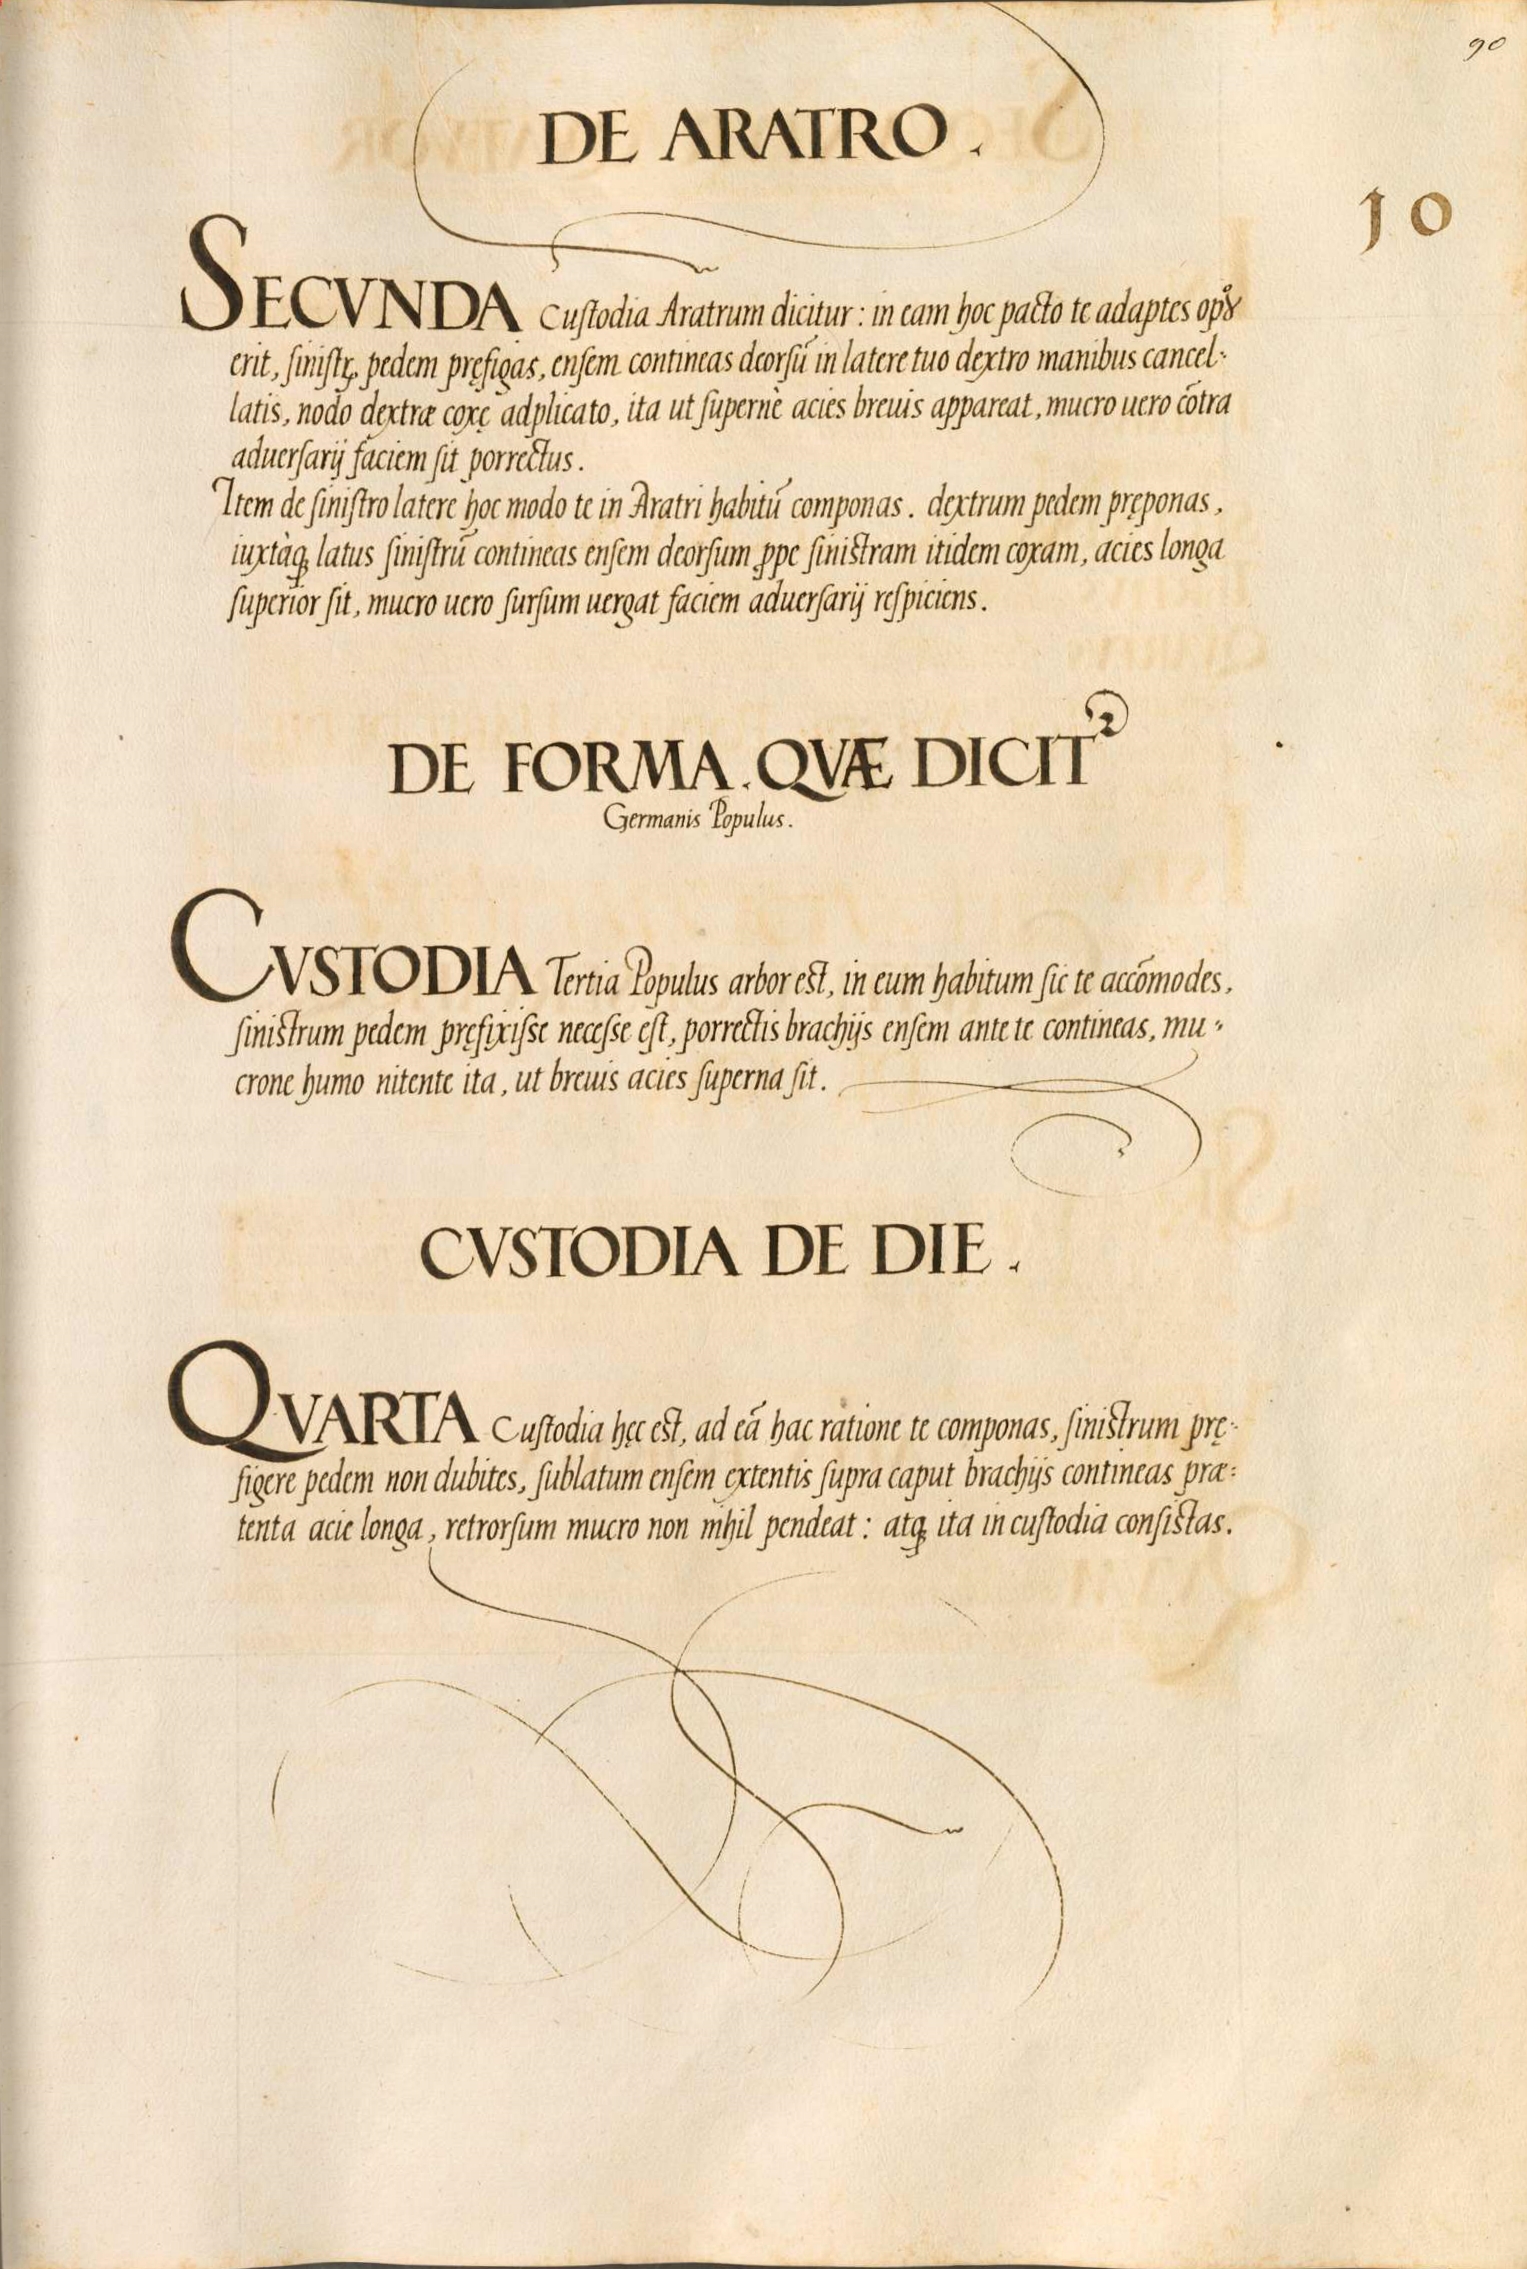 90
DE ARATRO.
10
SECVNDA Custodia Aratrum dicitur: in eam hoc pacto te adaptes
erit, pedem pręfigas, ensem contineas deorsū in latere tuo dextro manibus cancel-
latis, nodo dextræ coxę adplicato, ita ut supernè acies breuis appareat, mucro uero cōtra
aduersarij faciem sit porrectus.
Item de sinistro latere hoc modo te in Aratri habitū componas. dextrum pedem pręponas,
iuxtàqꝫ latus sinistrū contineas ensem deorsum ꝓpe sinistram itidem coxam, acies longa
superior sit, mucro uero sursum uergat faciem aduersarij respiciens.
DE FORMA. QVÆ DICITᷣ
Germanis Populus.
CVSTODIA Tertia Populus arbor est, in eum habitum sic te accōmodes,
sinistrum pedem pręfixisse necesse est, porrectis brachijs ensem ante te contineas, mu-
crone humo nitente ita, ut breuis acies superna sit.
CVSTODIA DE DIE.
QVARTA Custodia hęc est, ad eā hac ratione te componas, sinistrum prę-
figere pedem non dubites, sublatum ensem extentis supra caput brachijs contineas præ-
tenta acie longa, retrorsum mucro non nihil pendeat: atqꝫ ita in custodia consistas.